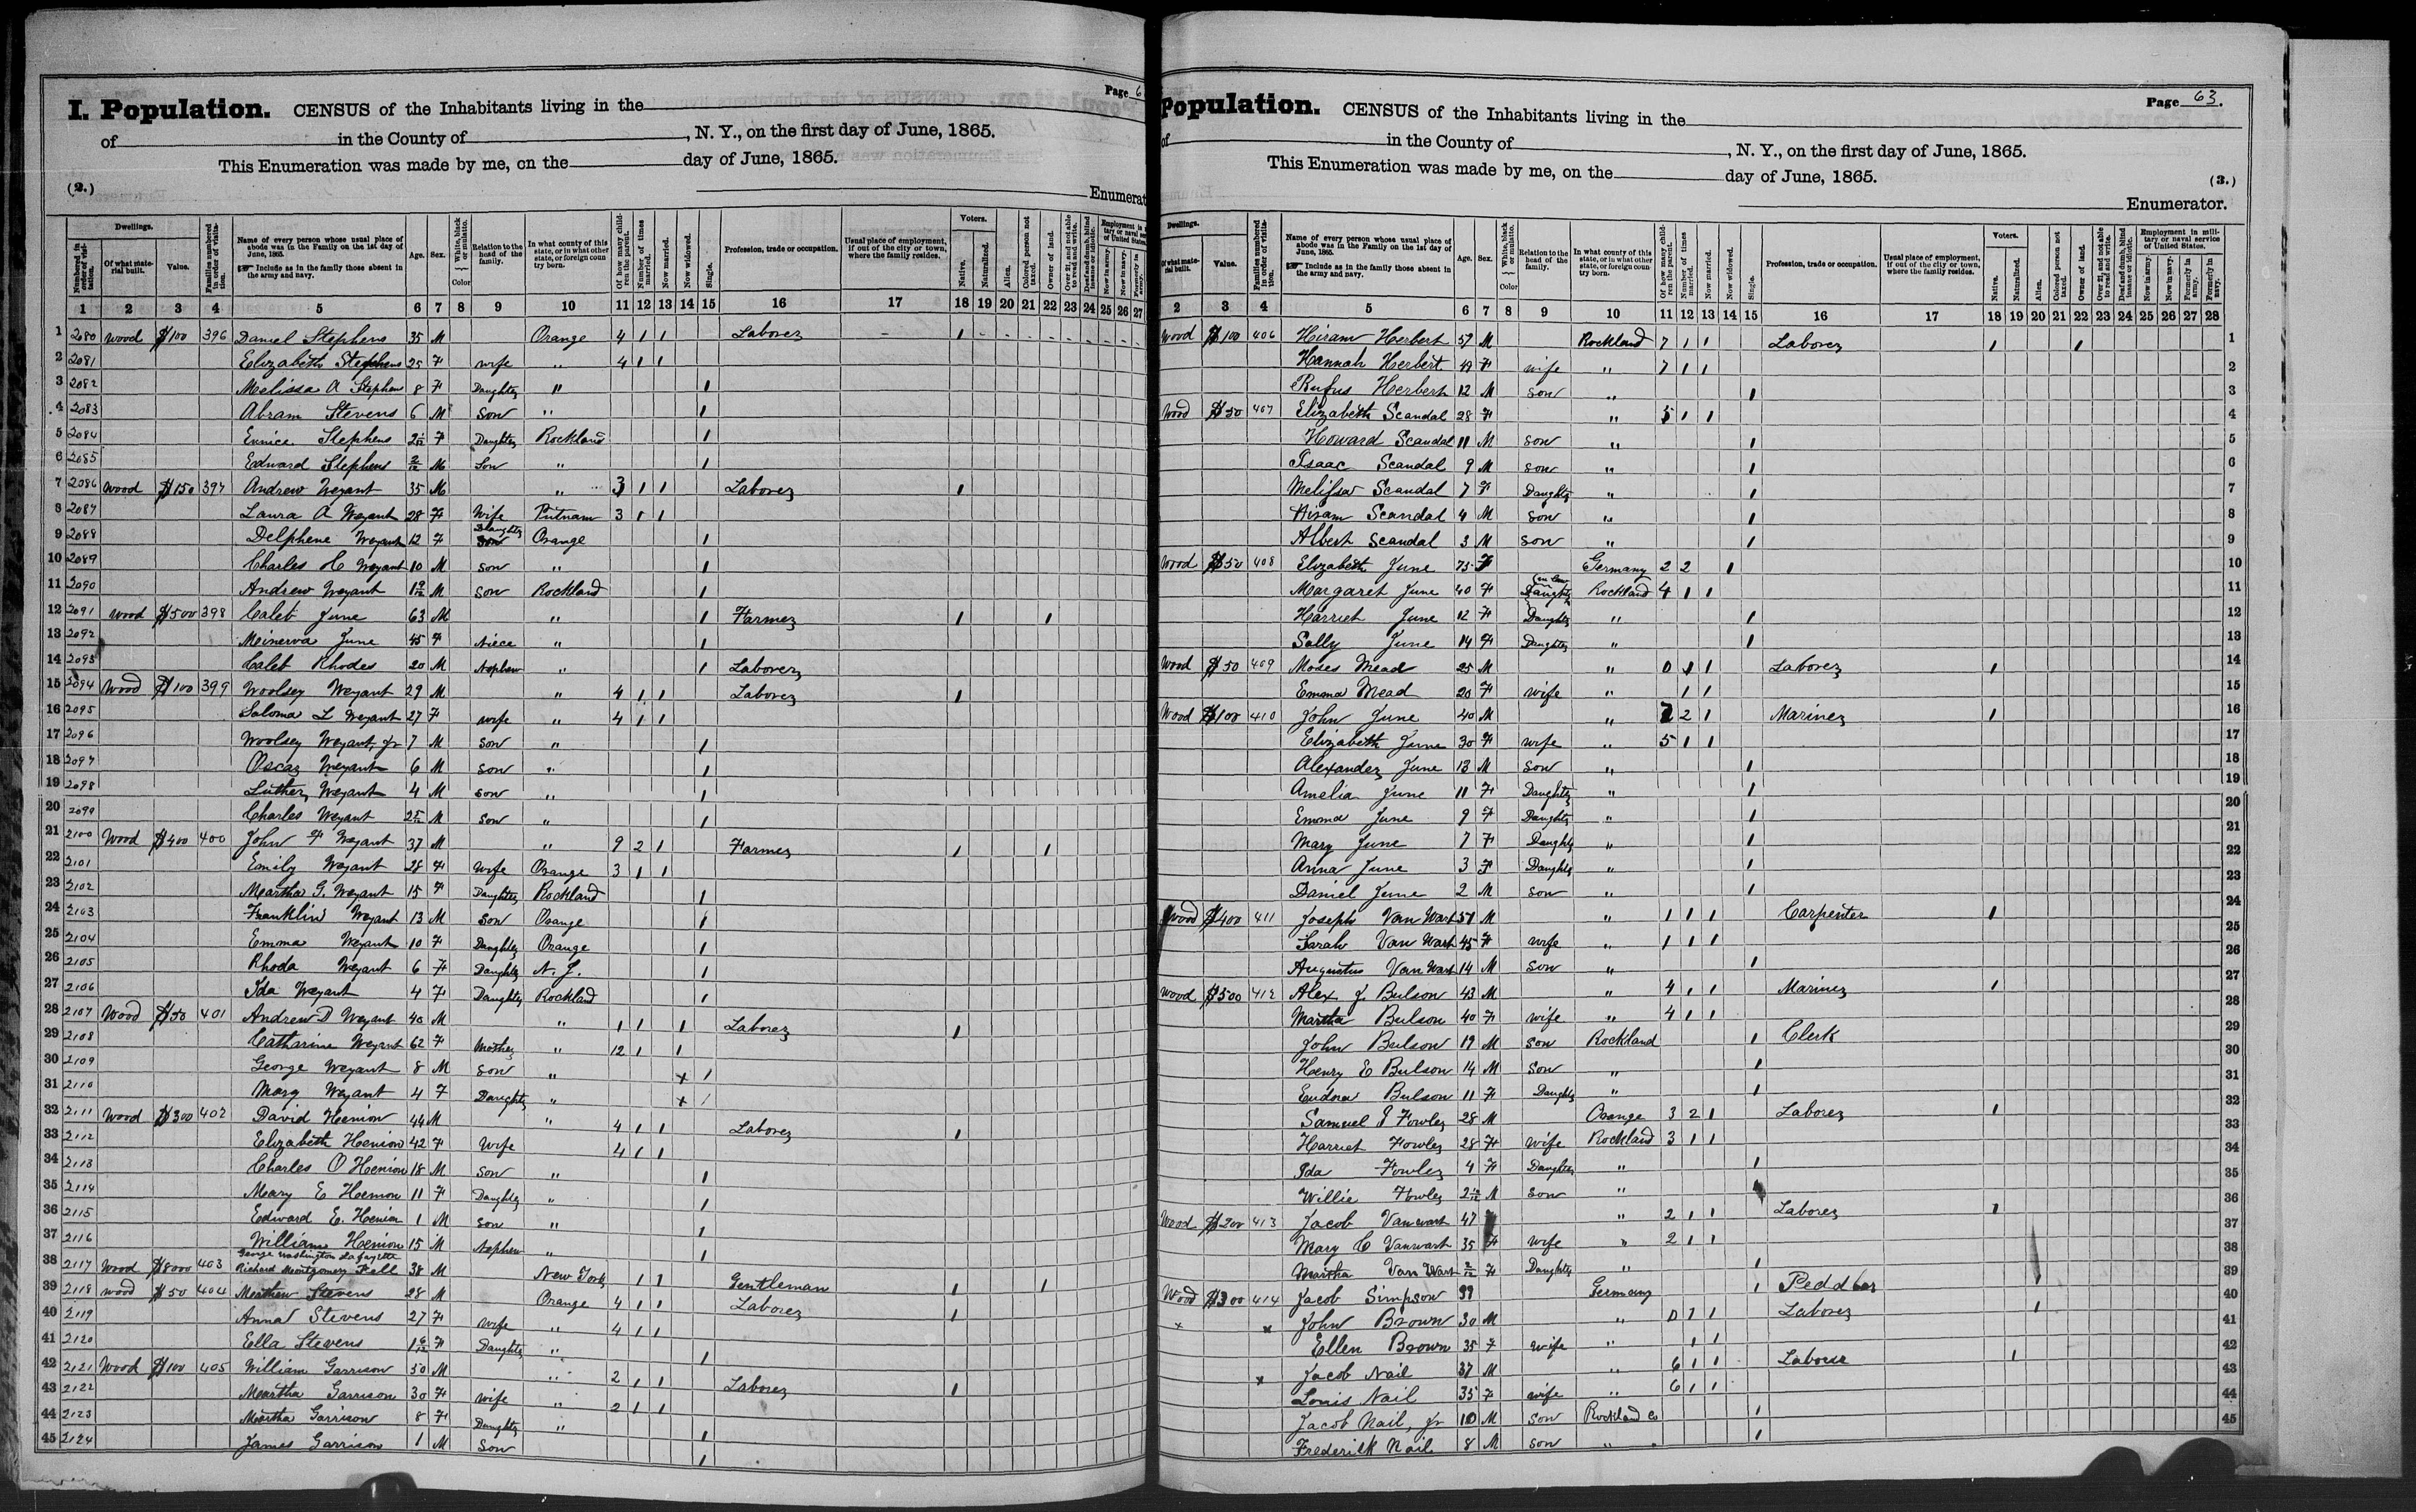 Page 6
I. Population. CENSUS of the Inhabitants living in the
of in the County of , N. Y., on the first day of June, 1865.
This Enumeration was made by me, on the day of June, 1865.
(2.)
Enumerat
Dwellings. Voters.
Numbered in order of visitation. Of what material built. Value. Families numbered in order of visitation. Name of every person whose usual place of abode was in the Family on the 1st day of June, 1865. Include as in the family those absent in the army and navy. Age. Sex. White, black or mulatto. Color Relation to the head of the family. In what county of this state, or in what other state, or foreign country born. Of how many children the parent. Number of times married. Now married. Now widowed. Single. Profession, trade or occupation. Usual place of employment, if out of the city or town, where the family resides. Native. Naturalized. Alien. Colored person not taxed. Owner of land. Over 21, and not able to read and write. Deaf and dumb, blind insane or idiotic. Now in army. Now in navy. Formerly in army.
1 2 3 4 5 6 7 8 9 10 11 12 13 14 15 16 17 18 19 20 21 22 23 24 25 26 27
1 2080 wood $100 396 Daniel Stephens 35 M Orange 4 1 1 Laborer 1
2 2081 Elizabeth Stephens 25 F wife " 4 1 1
3 2082 Melissa A Stephens 8 F Daughter " 1
4 2083 Abram Stevens 6 M son " 1
5 2084 Eunice Stephens F Daughter Rockland 1
6 2085 Edward Stephens 2/12 M Son " 1
7 2086 wood $150 397 Andrew Weyant 35 M " 3 1 1 Laborer 1
8 2087 Laura A Weyant 28 F Wife Putnam 3 1 1
9 2088 Delphene Weyant 12 F Daughter Orange 1
10 2089 Charles H Weyant 10 M son " 1
11 2090 Andrew Weyant M son Rockland 1
12 2091 wood $500 398 Caleb June 63 M " 1 Farmer 1 1
13 2092 Minerva June 45 F niece " 1
14 2093 Caleb Rhodes 20 M Nephew " 1 Laborer
15 2094 Wood $100 399 Woolsey Weyant 29 M " 4 1 1 Laborer 1
16 2095 Saloma L Weyant 27 F wife " 4 1 1
17 2096 Woolsey Weyant, Jr 7 M son " 1
18 2097 Oscar Weyant 6 M son " 1
19 2098 Luther Weyant 4 M son " 1
20 2099 Charles Weyant M son " 1
21 2100 Wood $400 400 John F Weyant 37 M " 9 2 1 Farmer 1 1
22 2101 Emily Weyant 28 F Wife Orange 3 1 1
23 2102 Martha G. Weyant 15 F Daughter Rockland 1
24 2103 Franklin Weyant 13 M son Orange 1
25 2104 Emma Weyant 10 F Daughter Orange 1
26 2105 Rhoda Weyant 6 F Daughter N. J. 1
27 2106 Ida Weyant 4 F Daughter Rockland 1
28 2107 Wood $50 401 Andrew D Weyant 40 M " 1 1 1 Laborer 1
29 2108 Catharine Weyant 62 F Mother " 12 1 1
30 2109 George Weyant 8 M son " x 1
31 2110 Mary Weyant 4 F Daughter " x 1
32 2111 Wood $300 402 David Henion 44 M " 4 1 1 Laborer 1
33 2112 Elizabeth Henion 42 F Wife 4 1 1
34 2113 Charles O Henion 18 M son " 1
35 2114 Mary E Henion 11 F Daughter " 1
36 2115 Edward E. Henion 1 M son " 1
37 2116 William Henion 15 M Nephew " 1
George Washington Lafayette
38 2117 Wood $8000 403 Richard Montgomery Fell 38 M New York 1 1 Gentleman 1 1
39 2118 wood $50 404 Mathew Stevens 28 M Orange 4 1 1 Laborer 1
40 2119 Anna Stevens 27 F wife " 4 1 1
41 2120 Ella Stevens F Daughter " 1
42 2121 Wood $100 405 William Garrison 30 M " 2 1 1 Laborer 1
43 2122 Martha Garrison 30 F wife " 2 1 1
44 2123 Martha Garrison 8 F Daughter " 1
45 2124 James Garrison 1 M Son 1
Page 63.
Population. CENSUS of the Inhabitants living in the
of in the County of , N. Y., on the first day of June, 1865.
This Enumeration was made by me, on the day of June, 1865.
(3.)
Enumerator.
Dwellings. Voters. Employment in military or naval service of United States.
Of what material built. Value. Families numbered in order of visitation. Name of every person whose usual place of abode was in the Family on the 1st day of June, 1865. Include as in the family those absent in the army and navy. Age. Sex. White, black or mulatto. Color Relation to the head of the family. In what county of this state, or in what other state, or foreign country born. Of how many children the parent. Number of times married. Now married. Now widowed. Single. Profession, trade or occupation. Usual place of employment, if out of the city or town, where the family resides. Native. Naturalized. Alien. Colored person not taxed. Owner of land. Over 21, and not able to read and write. Deaf and dumb, blind insane or idiotic. Now in army. Now in navy. Formerly in army. Formerly in navy.
2 3 4 5 6 7 8 9 10 11 12 13 14 15 16 17 18 19 20 21 22 23 24 25 26 27 28
Wood $100 406 Hiram Herbert 57 M Rockland 7 1 1 Laborer 1 1 1
Hannah Herbert 49 F wife " 7 1 1 2
Rufus Herbert 12 M son " 1 3
Wood $50 407 Elizabeth Scandal 28 F " 5 1 1 4
Howard Scandal 11 M son " 1 5
Isaac Scandal 9 M son " 1 6
Melissa Scandal 7 F Daughter " 1 7
Hiram Scandal 4 M son " 1 8
Albert Scandal 3 M son " 1 9
Wood $50 408 Elizabeth June 75 F Germany 2 2 1 10
Margaret June 40 F Daughter in law Rockland 4 1 1 11
Harriet June 12 F Daughter " 1 12
Sally June 14 F Daughter " 1 13
Wood $50 409 Moses Mead 25 M " 0 1 1 Laborer 1 14
Emma Mead 20 F wife " 1 1 15
Wood $100 410 John June 40 M " 7 2 1 Mariner 1 16
Elizabeth June 30 F wife " 5 1 1 17
Alexander June 13 M son " 1 18
Amelia June 11 F Daughter " 1 19
Emma June 9 F Daughter " 1 20
Mary June 7 F Daughter " 1 21
Anna June 3 F Daughter " 1 22
Daniel June 2 M son " 1 23
Wood $400 411 Joseph Van Wart 51 M " 1 1 1 Carpenter 1 24
Sarah Van Wart 45 F wife " 1 1 1 25
Augustus Van Wart 14 M son " 1 26
Wood $500 412 Alex J. Bulson 43 M " 4 1 1 Mariner 1 27
Martha Bulson 40 F wife " 4 1 1 28
John Bulson 19 M son Rockland 1 Clerk 29
Henry E Bulson 14 M Son " 1 30
Eudora Bulson 11 F Daughter " 1 31
Samuel J Fowler 28 M Orange 3 2 1 Laborer 1 32
Harriet Fowler 28 F wife Rockland 3 1 1 33
Ida Fowler 4 F Daughter " 1 34
Willie Fowler M son " 1 35
Wood $200 413 Jacob Vanwart 47 " 2 1 1 Laborer 1 36
Mary C Vanwart 35 F wife " 2 1 1 37
Martha Van Wart F Daughter " 1 38
Wood $300 414 Jacob Simpson 39 Germany 1 Peddler 1 39
x x John Brown 30 M " 0 1 1 Laborer 1 40
Ellen Brown 35 F wife " 1 1 41
x Jacob Nail 37 M " 6 1 1 Laborer 1 42
Louis Nail 35 F wife " 6 1 1 43
Jacob Nail, Jr 10 M son Rockland Co 1 44
Frederik Nail 8 M son " 1 45